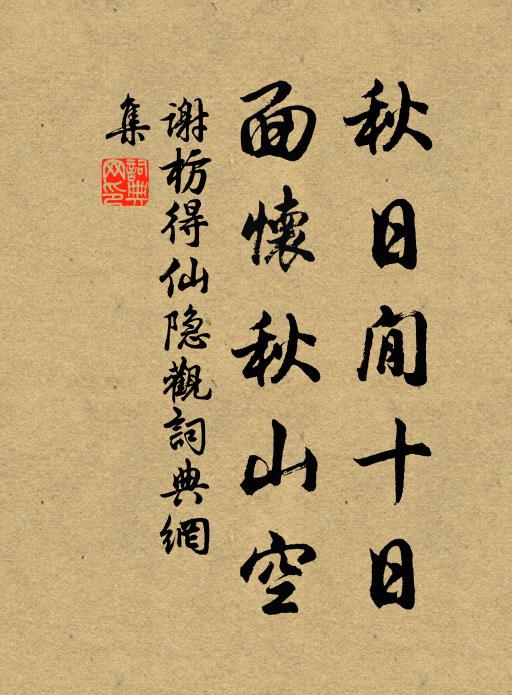 秋日閒十日
面懷秋山空
謝枋得仙隐觀詞典網
集
詞典网印